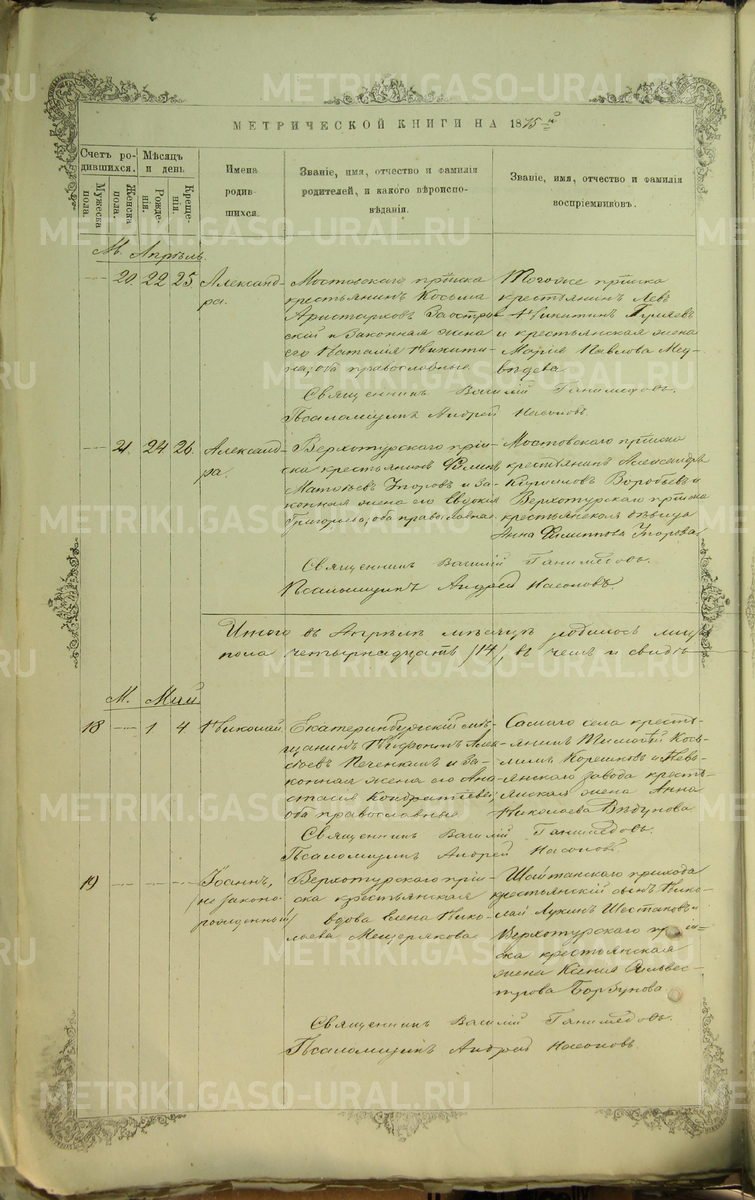 МЕТРИЧЕСКОЙ КНИГИ НА 1875й
Счетъ ро-
дившихся.
Мужеска
пола.
Женска
пола.
Мѣсяцъ
и день
Рожде-
нія.
Креще-
нія.
Имена
родив-
шихся.
Званіе, имя, отчество и фамилія
родителей, и какого вѣроиспо-
вѣданія.
Званіе, имя, отчество и фамилія
воспріемниковъ.
М. Апрѣль.
20. 22 25 Александ-
ра.
Мостовскаго пріиска
крестьянинъ Косьма
Аристарховъ Заостров
ской и законная жена
его Наталія Никити-
на; оба православные
Тогоже пріиска
крестьянинъ Левъ
Никитинъ
и крестьянская жена
Марія Павлова Мед-
вѣдева
Священникъ Василій Ганимедовъ.
Псаломщикъ Андрей Насоновъ
21. 24 26. Александ-
ра.
Верхотурскаго прі-
ска крестьянинъ Филиппъ
Матвѣевъ Угоровъ и за-
конная жена его Евдокія
Григорьева; оба православные
Мостовскаго пріиска
крестьянинъ Александръ
Кириловъ Воробьевъ и
Верхотурскаго пріиска
крестьянская дѣвица
Анна Филиппова Угорова
Священникъ Василій Ганимедовъ.
Псаломщикъ Андрей Насоновъ.
Итого въ Апрѣлѣ мѣсяцѣ родилось
пола четырнадцать /14/, въ чемъ и свидѣ
М. Май
18 1 4 Николай
Екатеринбургскій мѣ-
щанинъ Нифонтъ Алек-
сѣевъ Печенкинъ и за-
конная жена его Ана-
стасія Кондратьева;
оба православные
Самаго села кресть-
янинъ Тимофей Козь-
минъ Корешковъ и Невь-
янскаго завода кресть-
янская жена Анна
Николаева Вѣдунова
Священникъ Василій Ганимедовъ.
Псаломщикъ Андрей Насоновъ.
19 Іоаннъ,
/незаконо-
рожденный/
Верхотурскаго прі-
ска крестьянская
вдова Елена Нико-
лаева Мещерякова
Шайтанскаго прихода
крестьянскій сынъ Нико-
лай Лукинъ Шестаковъ и
Верхотурскаго пріи-
ска крестьянская
жена Ксенія Сильвес-
трова Барбунова
Священникъ Василій Ганимедовъ.
Псаломщикъ Андрей Насоновъ.
METRIKI.GASO-URAL.RU